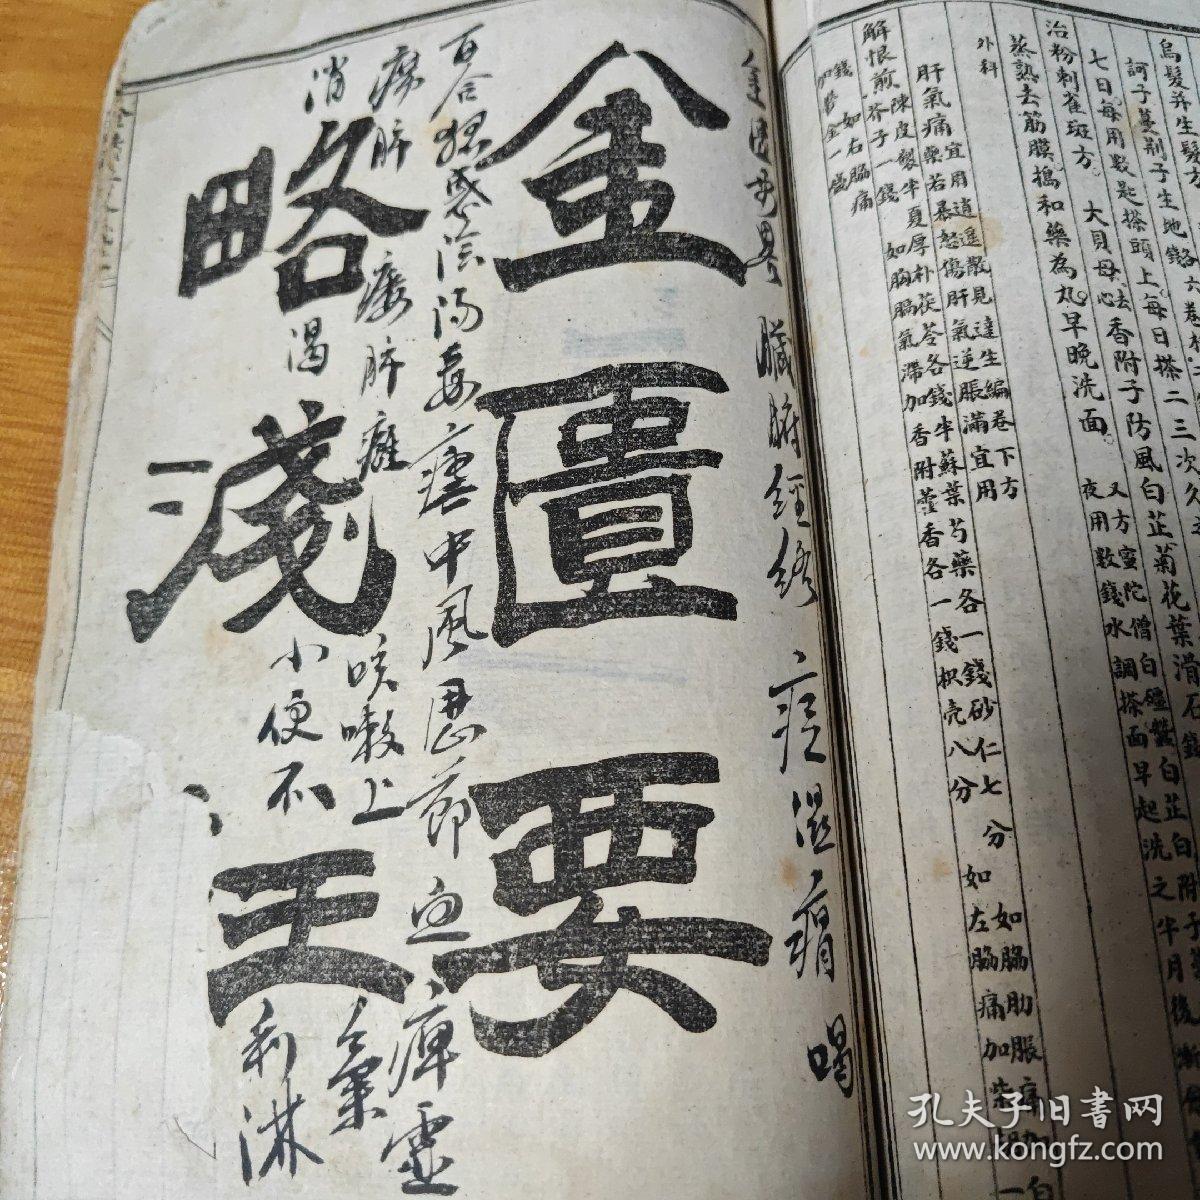 烏髮并生髮方
訶子蔓荆子生地
七日每用數匙搽頭上每日搽二三次
大貝母去心香附子防風白芷菊花葉滑石
又方蜜陀僧白殭蠶白芷白附子
夜用數錢水調搽面早起洗之半月後
治粉刺雀斑方
蒸熟去筋膜搗和藥為丸早晚洗面
外科
肝氣痛藥宜用逍遥散見達生編卷下方
若暴怒傷肝氣逆脹滿宜用
解恨煎陳皮製半夏厚朴茯苓各錢半蘇葉芍藥各一錢砂仁七分
芥子一錢 如胸膈氣滯加香附藿香各一錢枳壳八分
如右脇痛
如左脇痛加柴
如脇肋脹痛加白
金匱要略 臟腑經絡 痓濕暍
金匱要
略淺
百合狐惑陰陽毒瘧中風歷節血痺虚
癆肺痿肺癰 咳嗽上氣
消渴 小便不利淋
孔夫子旧書网
www.kongfz.com